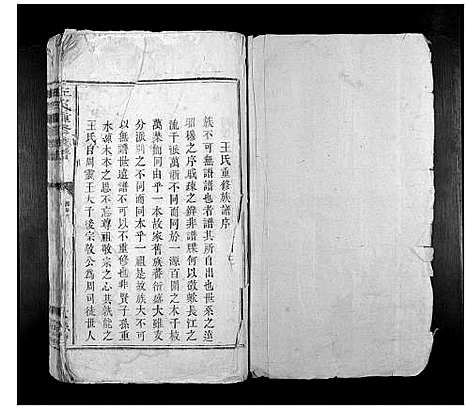 王氏重修族譜序
族不可無譜譜也者譜其所自出也世系之遠
昭穆之序戚疎之辨非譜牒何以徵歟長江之
流千派萬派不同而同於一源百圍之木千枝
萬葉不同而同由乎一本故家舊族蕃衍盛大雖支
分派別之不同而同本乎一祖是故族大不可
以無譜世遠譜不可以不重修非賢子孫重
水源木本之思不忘尊祖敬宗之心其孰能之
王氏自周靈王太子後宗敬公為周司徒世人